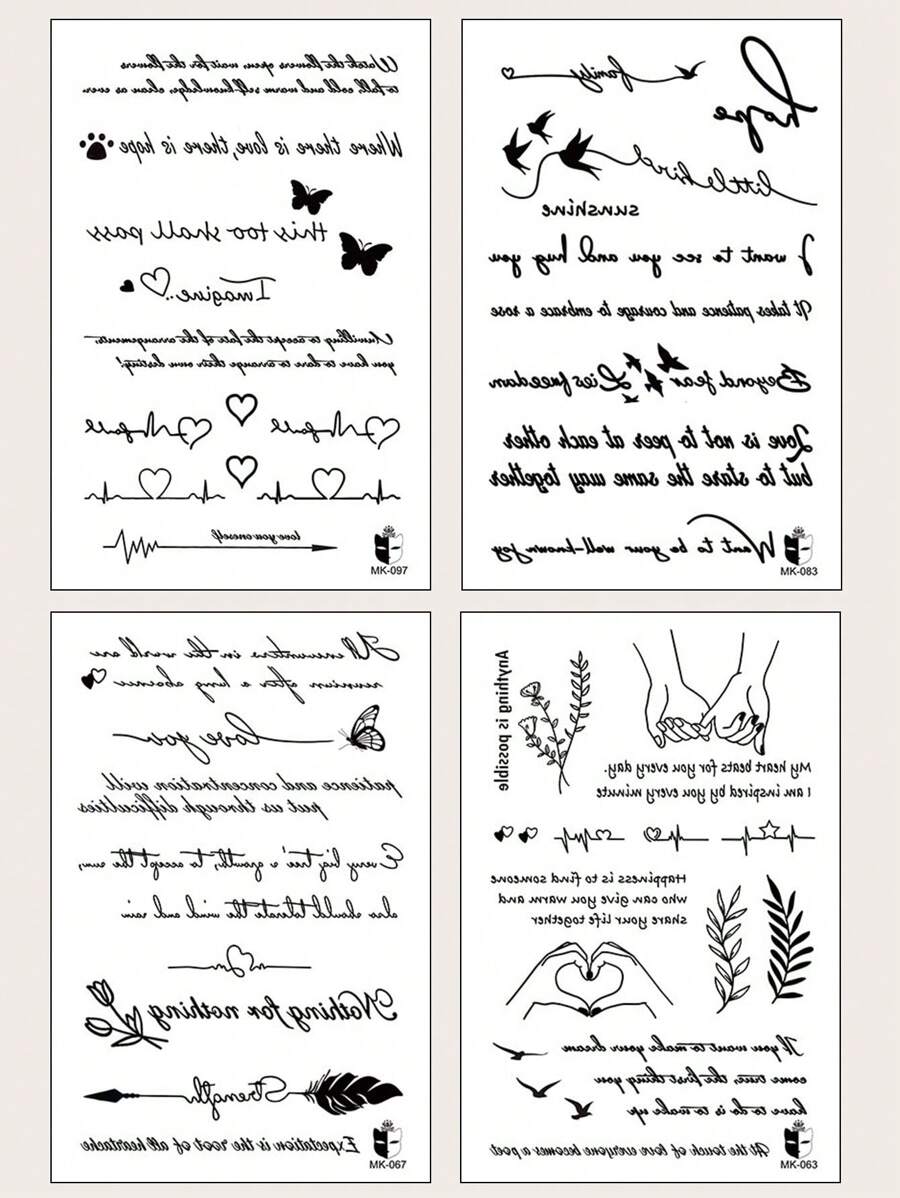 Watch the flowers open, wait for the flowers
to fall, cold and warm self-knowledge, clean as ever
Where there is love, there is hope
this too shall pass
Imagine..
Unwilling to accept the fate of the arrangements.
you have to dare to arrange their own destiny!
love you oneself
MK-097
family
hope
little bird
sunshine
I want to see you and hug you
It takes patience and courage to embrace a rose
Beyond fear Lies freedom
Love is not to peer at each other
but to stare the same way together
Want to be your well-known joy
MK-083
All encounters in the world are
reunion after a long absence
love you
patience and concentration will
put us through difficulties
Every big tree's growth, to accept the sun,
also should tolerate the wind and rain
Nothing for nothing
Strength
Expectation is the root of all heartache
MK-067
Anything is possible
My heart beats for you every day.
I am inspired by you every minute
Happiness is to find someone
who can give you warm and
share your life together
If you want to make your dream
come true, the first thing you
have to do is to wake up
At the touch of love everyone becomes a poet
MK-063